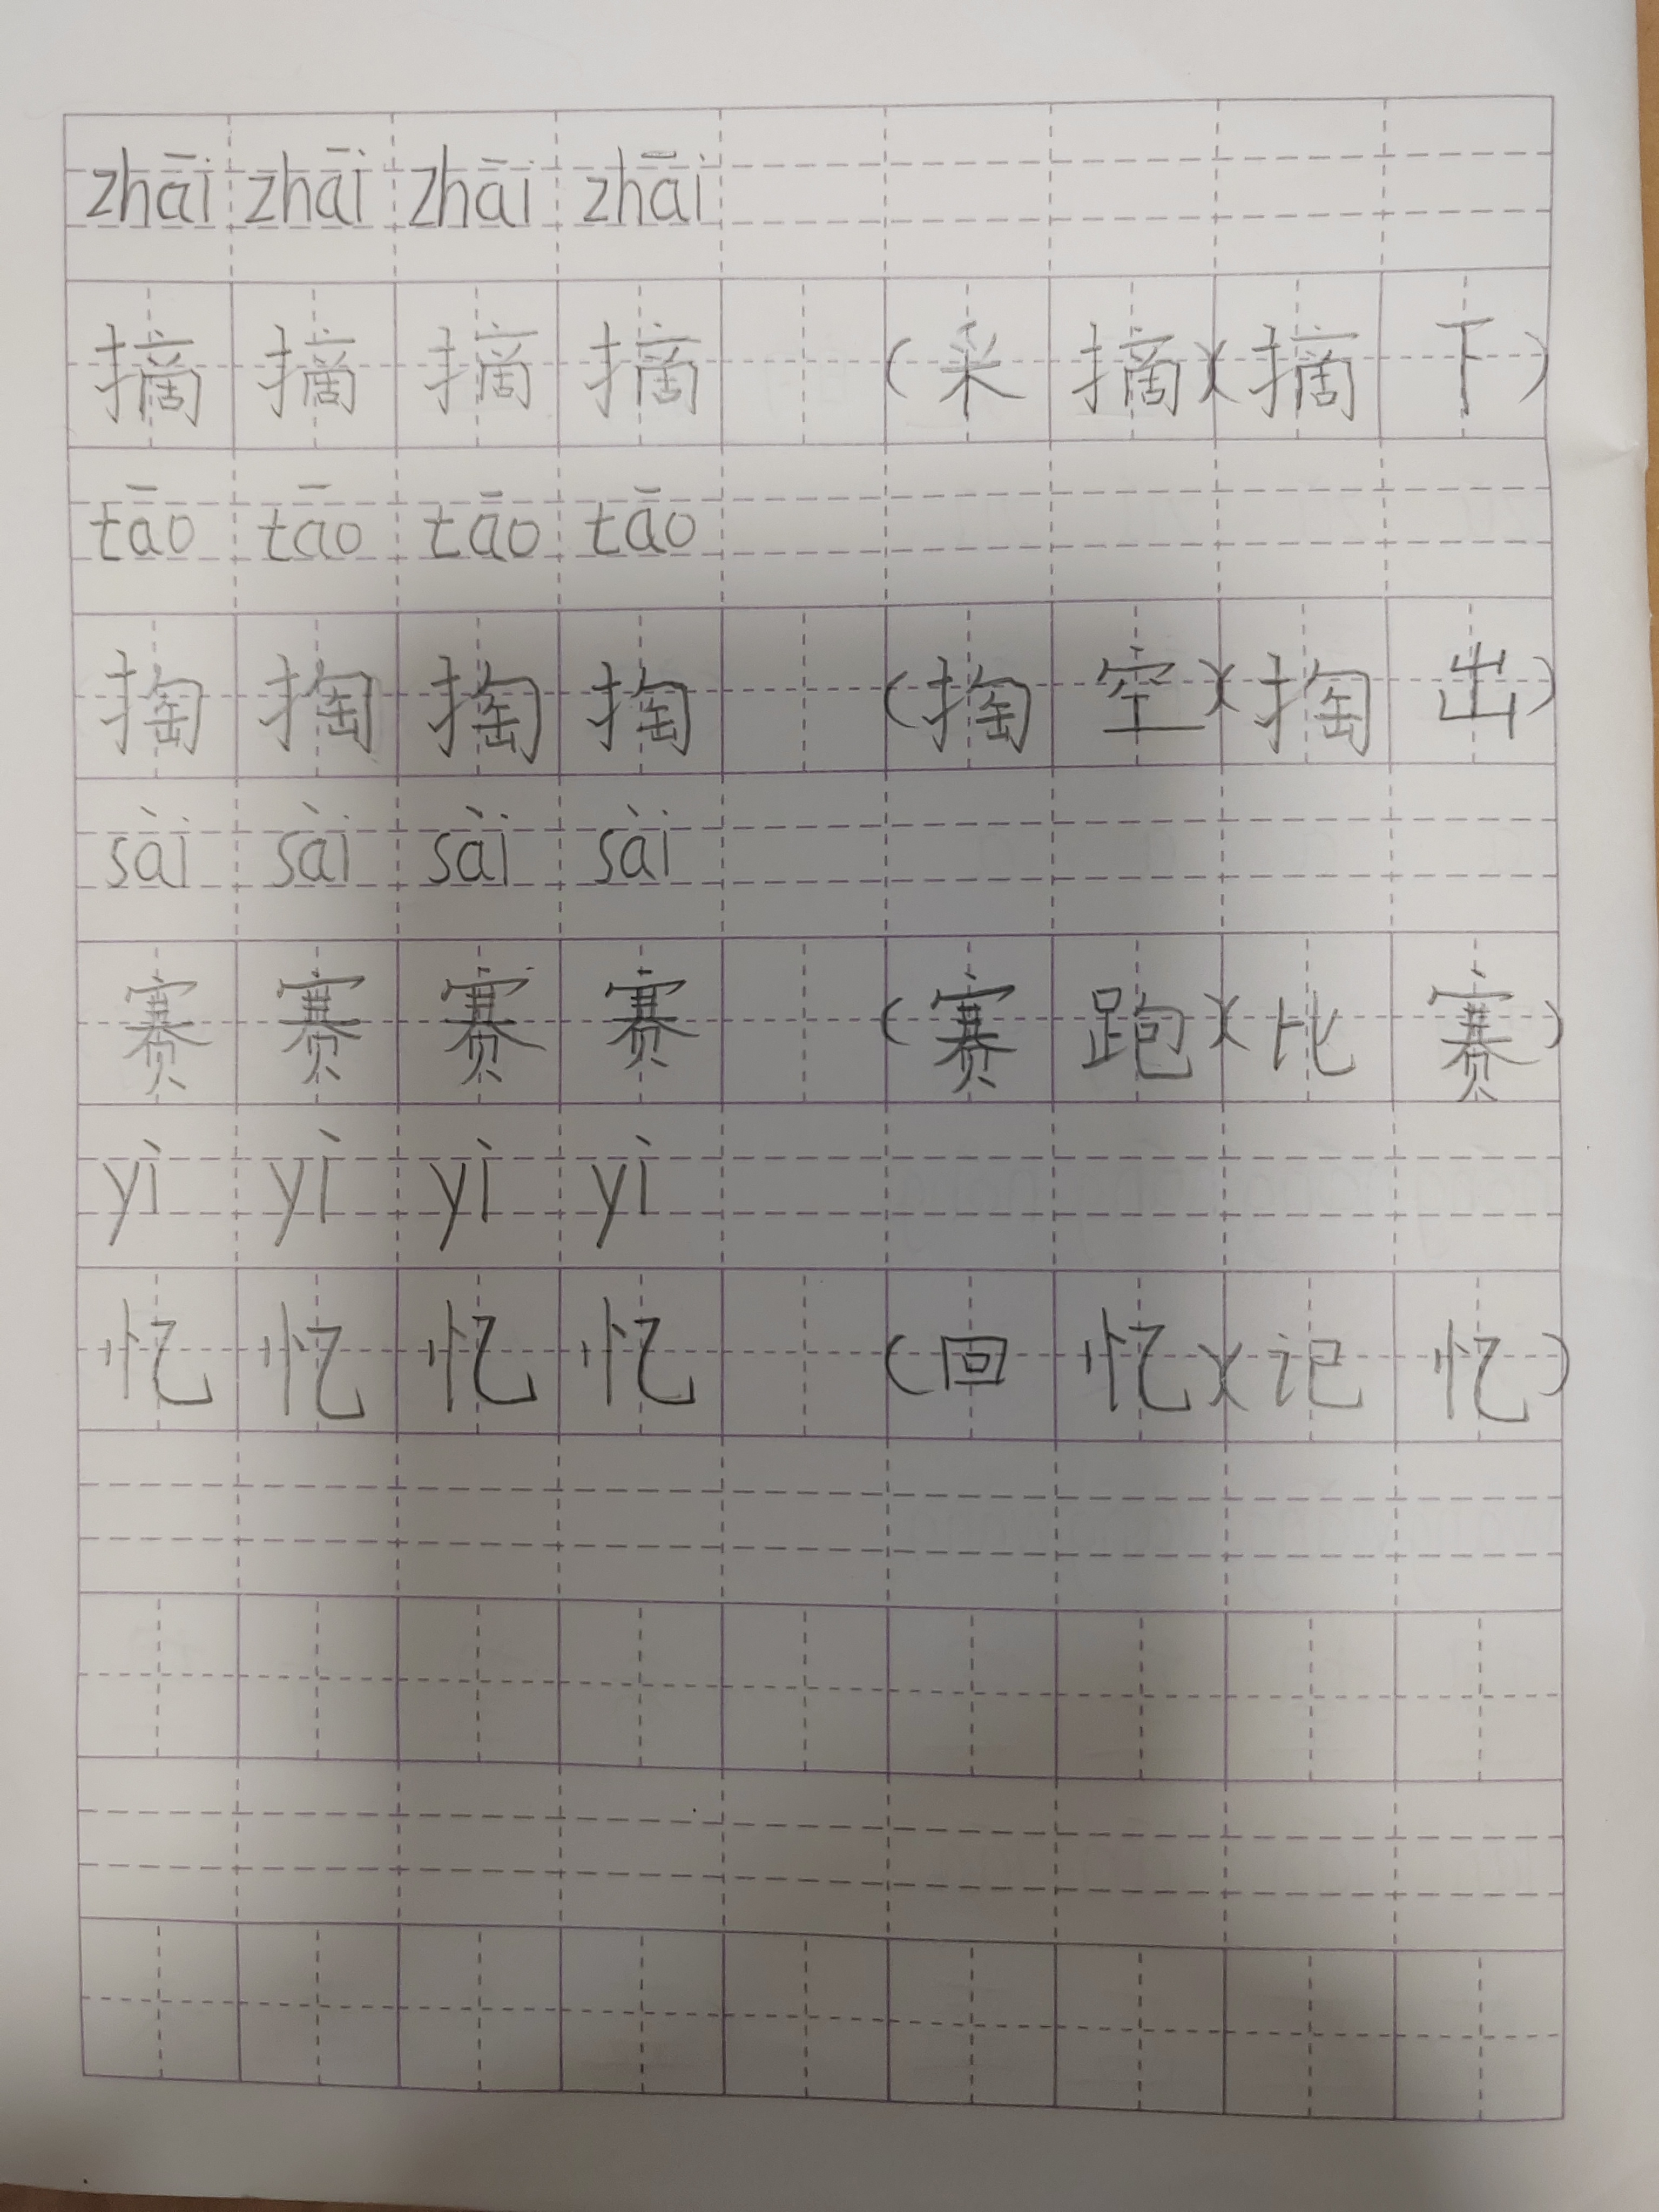 zhāi zhāi zhāi zhāi
摘 摘 摘 摘 (采摘)(摘下)
tāo tāo tāo tāo
掏 掏 掏 掏 (掏空)(掏出)
sài sài sài sài
赛 赛 赛 赛 (赛跑)(比赛)
yì yì yì yì
忆 忆 忆 忆 (回忆)(记忆)